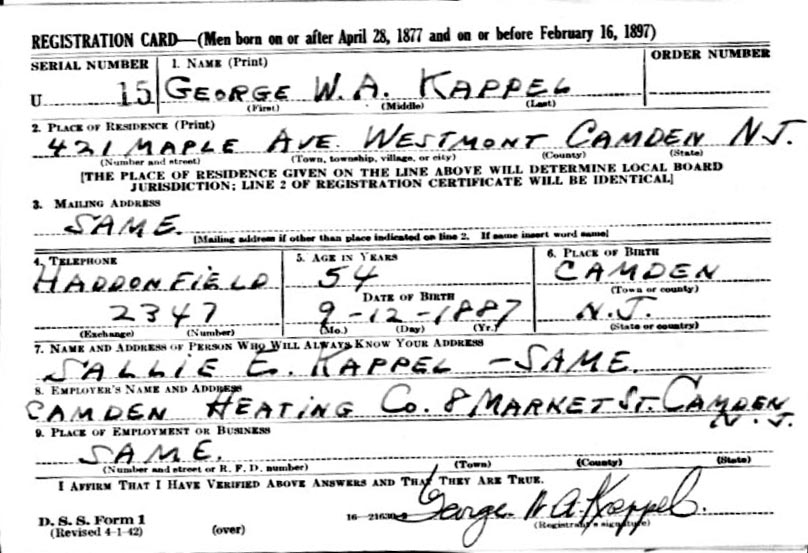 REGISTRATION CARD—(Men born on or after April 28, 1877 and on or before February 16, 1897)
SERIAL NUMBER 1. NAME (Print) ORDER NUMBER
U 15 GEORGE W. A. KAPPEL
(First) (Middle) (Last)
2. PLACE OF RESIDENCE (Print)
421 MAPLE AVE. WESTMONT CAMDEN N.J.
(Number and street) (Town, township, village, or city) (County) (State)
[THE PLACE OF RESIDENCE GIVEN ON THE LINE ABOVE WILL DETERMINE LOCAL BOARD
JURISDICTION; LINE 2 OF REGISTRATION CERTIFICATE WILL BE IDENTICAL]
3. MAILING ADDRESS
SAME.
[Mailing address if other than place indicated on line 2. If same insert word same]
4. TELEPHONE 5. AGE IN YEARS 6. PLACE OF BIRTH
HADDONFIELD 54 CAMDEN
DATE OF BIRTH (Town or county)
2347 9-12-1887 N.J.
(Exchange) (Number) (Mo.) (Day) (Yr.) (State or country)
7. NAME AND ADDRESS OF PERSON WHO WILL ALWAYS KNOW YOUR ADDRESS
SALLIE E. KAPPEL - SAME.
8. EMPLOYER'S NAME AND ADDRESS
CAMDEN HEATING CO. 8 MARKET ST. CAMDEN
N.J.
9. PLACE OF EMPLOYMENT OR BUSINESS
SAME.
(Number and street or R. F. D. number) (Town) (County) (State)
I AFFIRM THAT I HAVE VERIFIED ABOVE ANSWERS AND THAT THEY ARE TRUE.
D. S. S. Form 1 16—21630-2 George W A. Kappel.
(Revised 4-1-42) (over) (Registrant's signature)